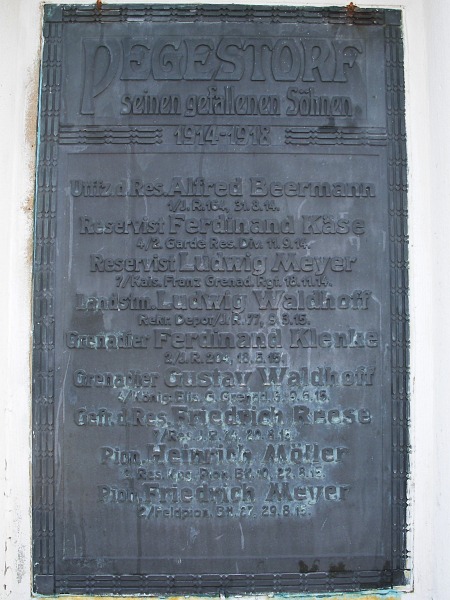 PEGESTORF
seinen gefallenen Söhnen.
1914-1918
Utffz. d. Res. Alfred Beermann
1/J.R. 164, 31.8.14.
Reservist Ferdinand Käse
4/2. Garde Res. Div. 11.9.14.
Reservist Ludwig Meyer
7/Kais. Franz Grenad. Rgt. 18.11.14.
Landstm. Ludwig Waldhoff
Rekr. Depot J.R. 77, 5.15.
Grenadier Ferdinand Klenke
2/J.R. 204, 18.5.15.
Grenadier Gustav Waldhoff
Grenad. 9.6.15.
Gefr. d. Res. Friedrich Reese
8.15.
Pion. Heinrich Möller
Res. Kop. Pion. Btl. 10, 22.8.15.
Pion. Friedrich Meyer
2/Feldpion. Btl. 27, 29.8.15.